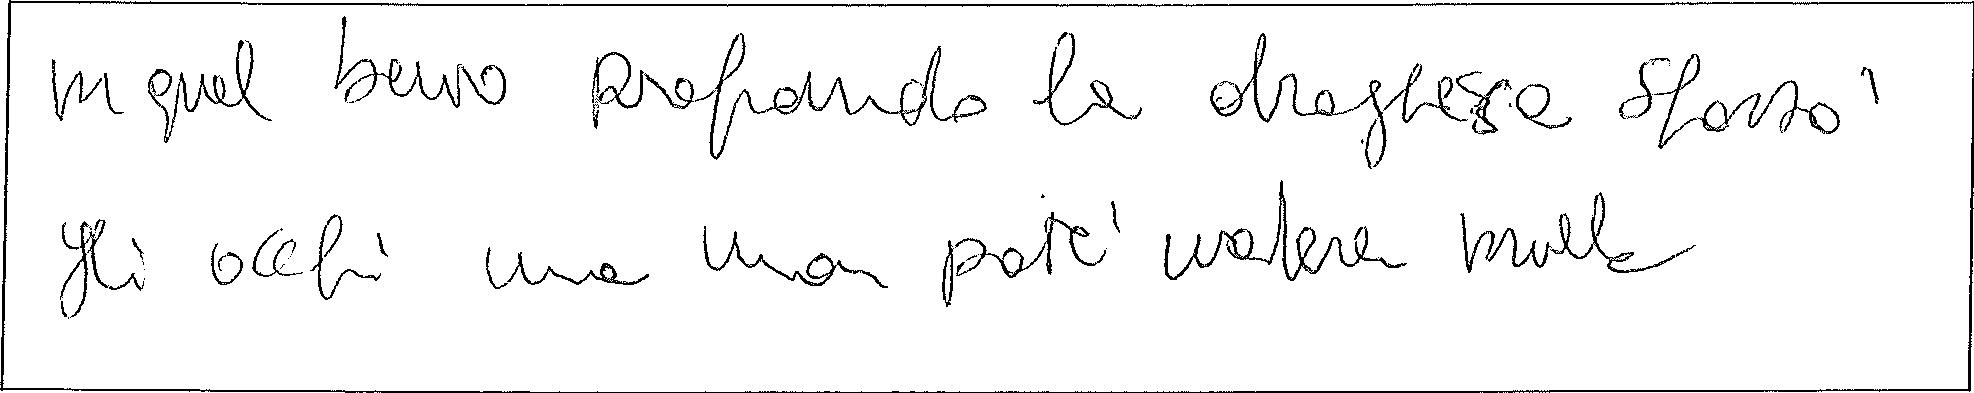 in quel buio profondo la draghessa sforzò
gli occhi ma non poté vedere nulla